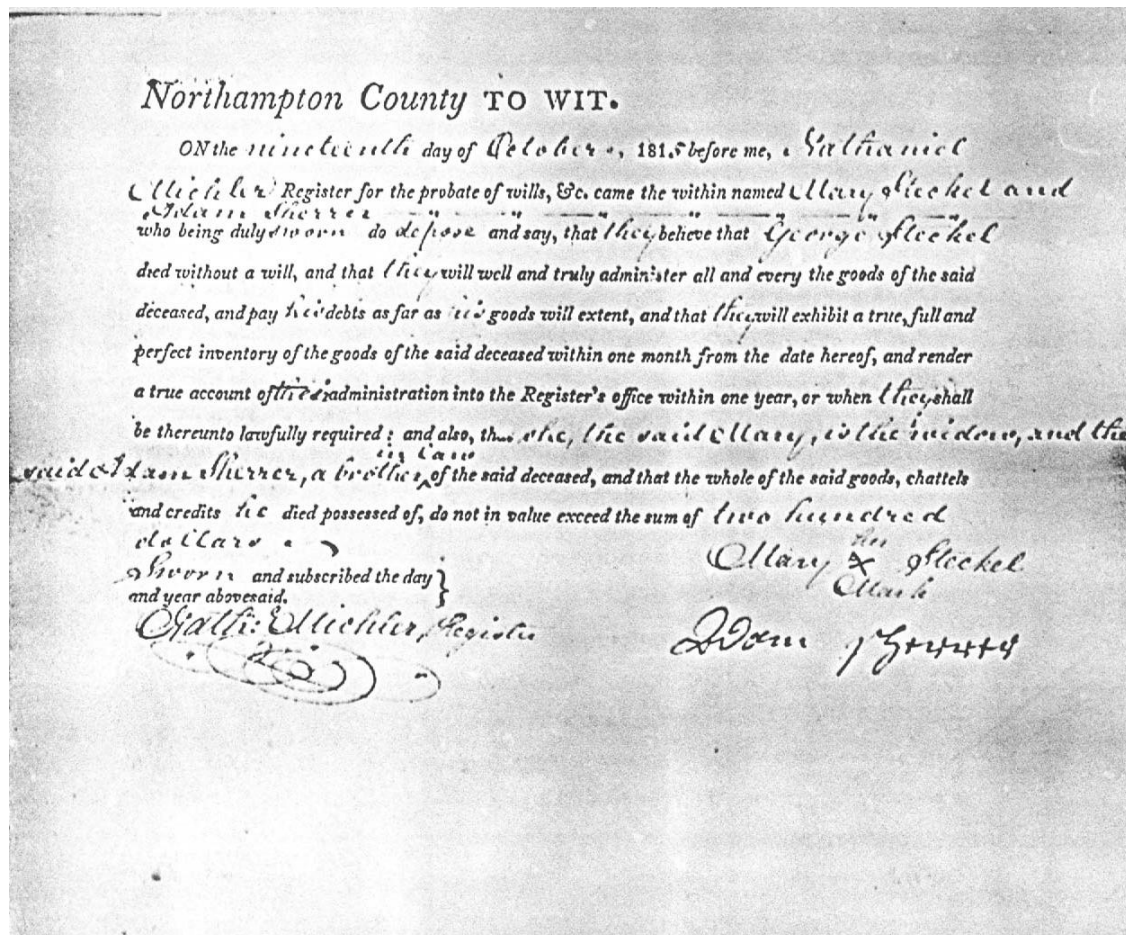 Northampton County TO WIT.
ON the nineteenth day of October, 1815 before me, Nathaniel
Michler Register for the probate of wills, &c. came the within named Mary Steckel and
Adam Sherrer
who being duly sworn do depose and say, that they believe that George Steckel
died without a will, and that they will well and truly administer all and every the goods of the said
deceased, and pay his debts as far as his goods will extent, and that they will exhibit a true, full and
perfect inventory of the goods of the said deceased within one month from the date hereof, and render
a true account of their administration into the Register's office within one year, or when they shall
be thereunto lawfully required: and also, that she, the said Mary, is the widow, and the
in law
said Adam Sherrer, a brother ^ of the said deceased, and that the whole of the said goods, chattels
and credits he died possessed of, do not in value exceed the sum of two hundred
dollars.
Sworn and subscribed the day
and year abovesaid.
Nath: Michler, Register
her
Mary X Steckel
Mark
Adam Sherrer